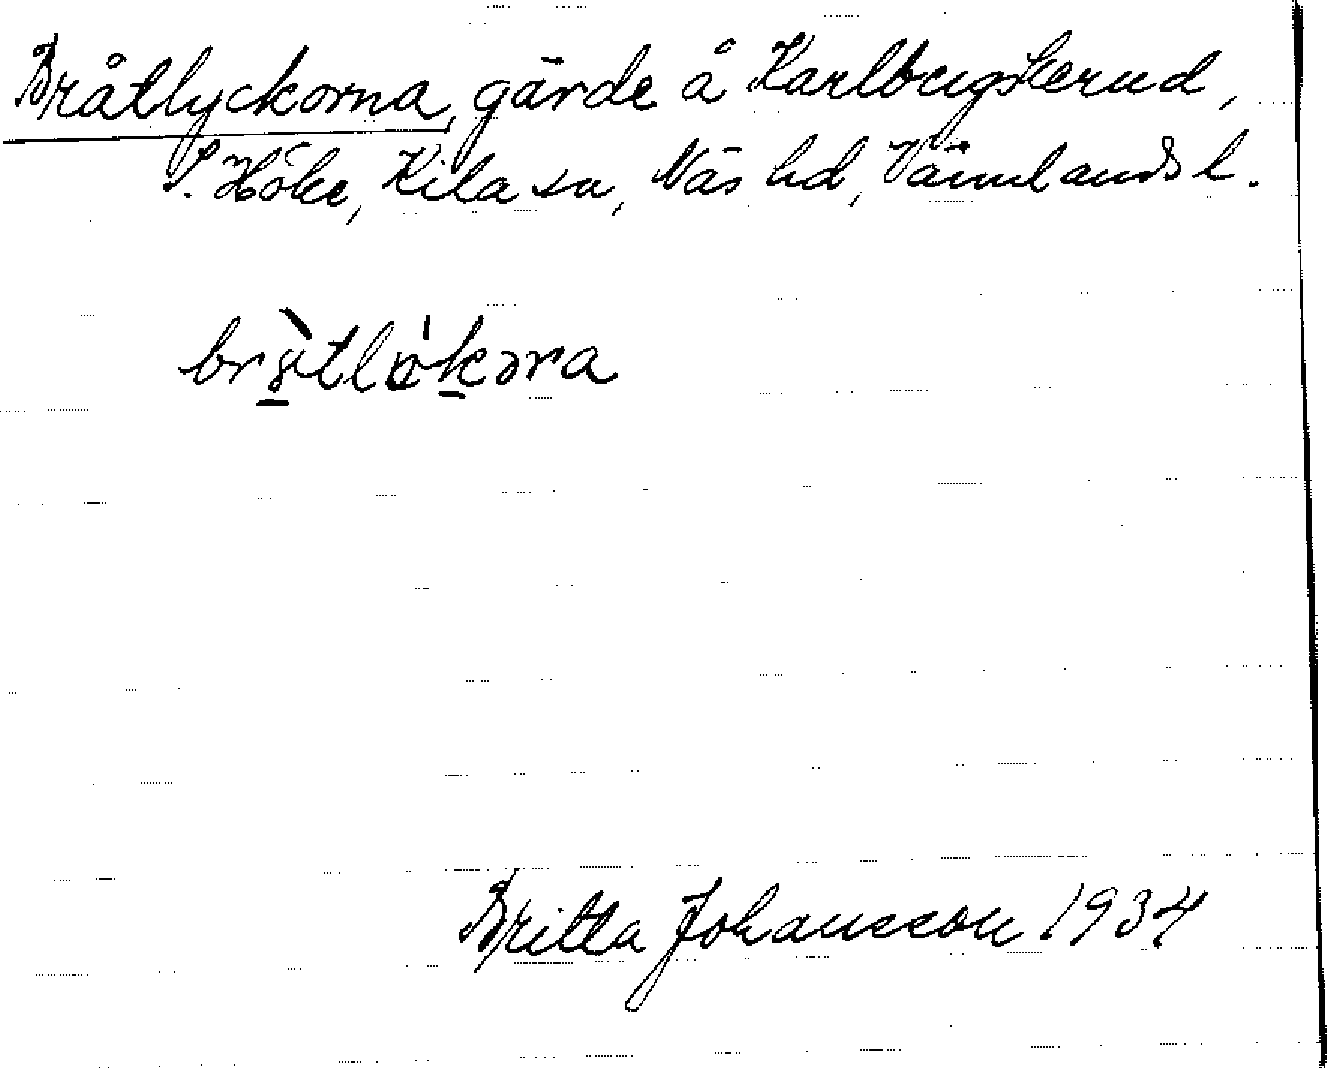 Bråtlyckorna, gärde å Karlbergskerud,
S. Höke, Kila sn, Näs hd, Värmlands l.
Britta Johansson 1934